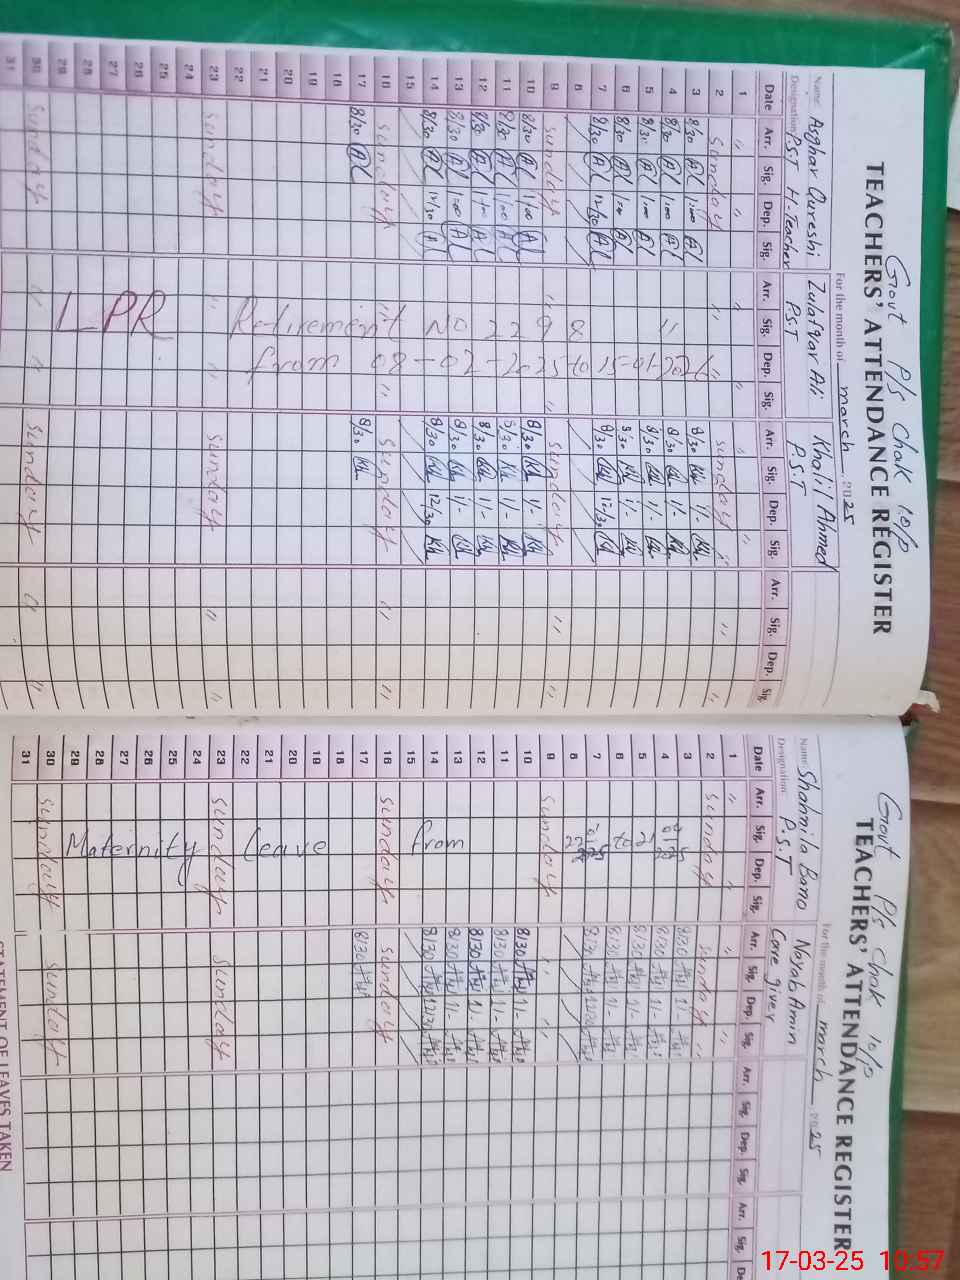 Govt P/S Chak 10/P
TEACHERS' ATTENDANCE REGISTER
For the month of march 2025
Name: Asghar Qureshi Zulafqar Ali Khalil Ahmed
Designation: P.S.T H.Teacher P.S.T P.S.T
Date Arr. Sig. Dep. Sig. Arr. Sig. Dep. Sig. Arr. Sig. Dep. Sig. Arr. Sig. Dep. Sig.
1 " " " " " "
2 Sunday " " Sunday " " "
3 8/30 1:00 8/30 1/-
4 8/30 1:00 " 8/30 1/-
5 8/30 1:00 8/30 1/-
6 8/30 1:00 8/30 1/-
7 8/30 12/30 8/30 12/30
8
9 Sunday " " Sunday " "
10 8/30 1:00 8/30 1/-
11 8/30 1:00 8/30 1/-
12 8/30 1:00 8/30 1/-
13 8/30 1:00 8/30 1/-
14 8/30 12/30 8/30 12/30
15
16 Sunday " " Sunday " "
17 8/30 8/30
18
19
20
21
22
23 Sunday " " Sunday " "
24
25
26
27
28
29
30 Sunday " " Sunday " "
31
LPR Retirement NO 2298
from 08-02-2025 To
Govt P/S Chak 10/P
TEACHERS' ATTENDANCE REGISTER
For the month of march, 2025
Name: Shahnila Bano Nayab Amin
Designation: P.S.T Care giver
Date Arr. Sig. Dep. Sig. Arr. Sig. Dep. Sig. Arr. Sig. Dep. Sig. Arr. Sig. Dep.
1 " " " "
2 Sunday Sunday "
3 8/30 1/-
4 8/30 1/-
5 8/30 1/-
6 8/30 1/-
7 8/30 12/30
8
9 Sunday " "
10 8/30 1/-
11 8/30 1/-
12 8/30 1/-
13 8/30 1/-
14 8/30 12/30
15
16 Sunday Sunday
17 8/30
18
19
20
21
22
23 Sunday Sunday
24
25
26
27
28
29
30 Sunday Sunday
31
Maternity Leave from
STATEMENT OF LEAVES TAKEN
17-03-25 10:57